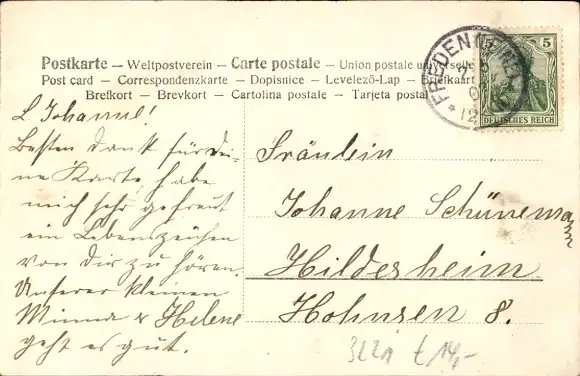 Postkarte — Weltpostverein — Carte postale — Union postale universelle
Post card — Correspondenzkarte — Dopisnice — Levelező-Lap — Briefkaart
Brefkort — Brevkort — Cartolina postale — Tarjeta postal
FREDEN (LEINE)
12
5
DEUTSCHES REICH
L. Johanne!
Besten Dank für dei-
ne Karte, habe
mich sehr gefreut
ein Lebenszeichen
von dir zu hören.
Unserer kleinen
Minna & Helene
geht es gut.
Fräulein
Johanne Schünemann
Hildesheim
Hohnsen 8.
3221 € 14,-